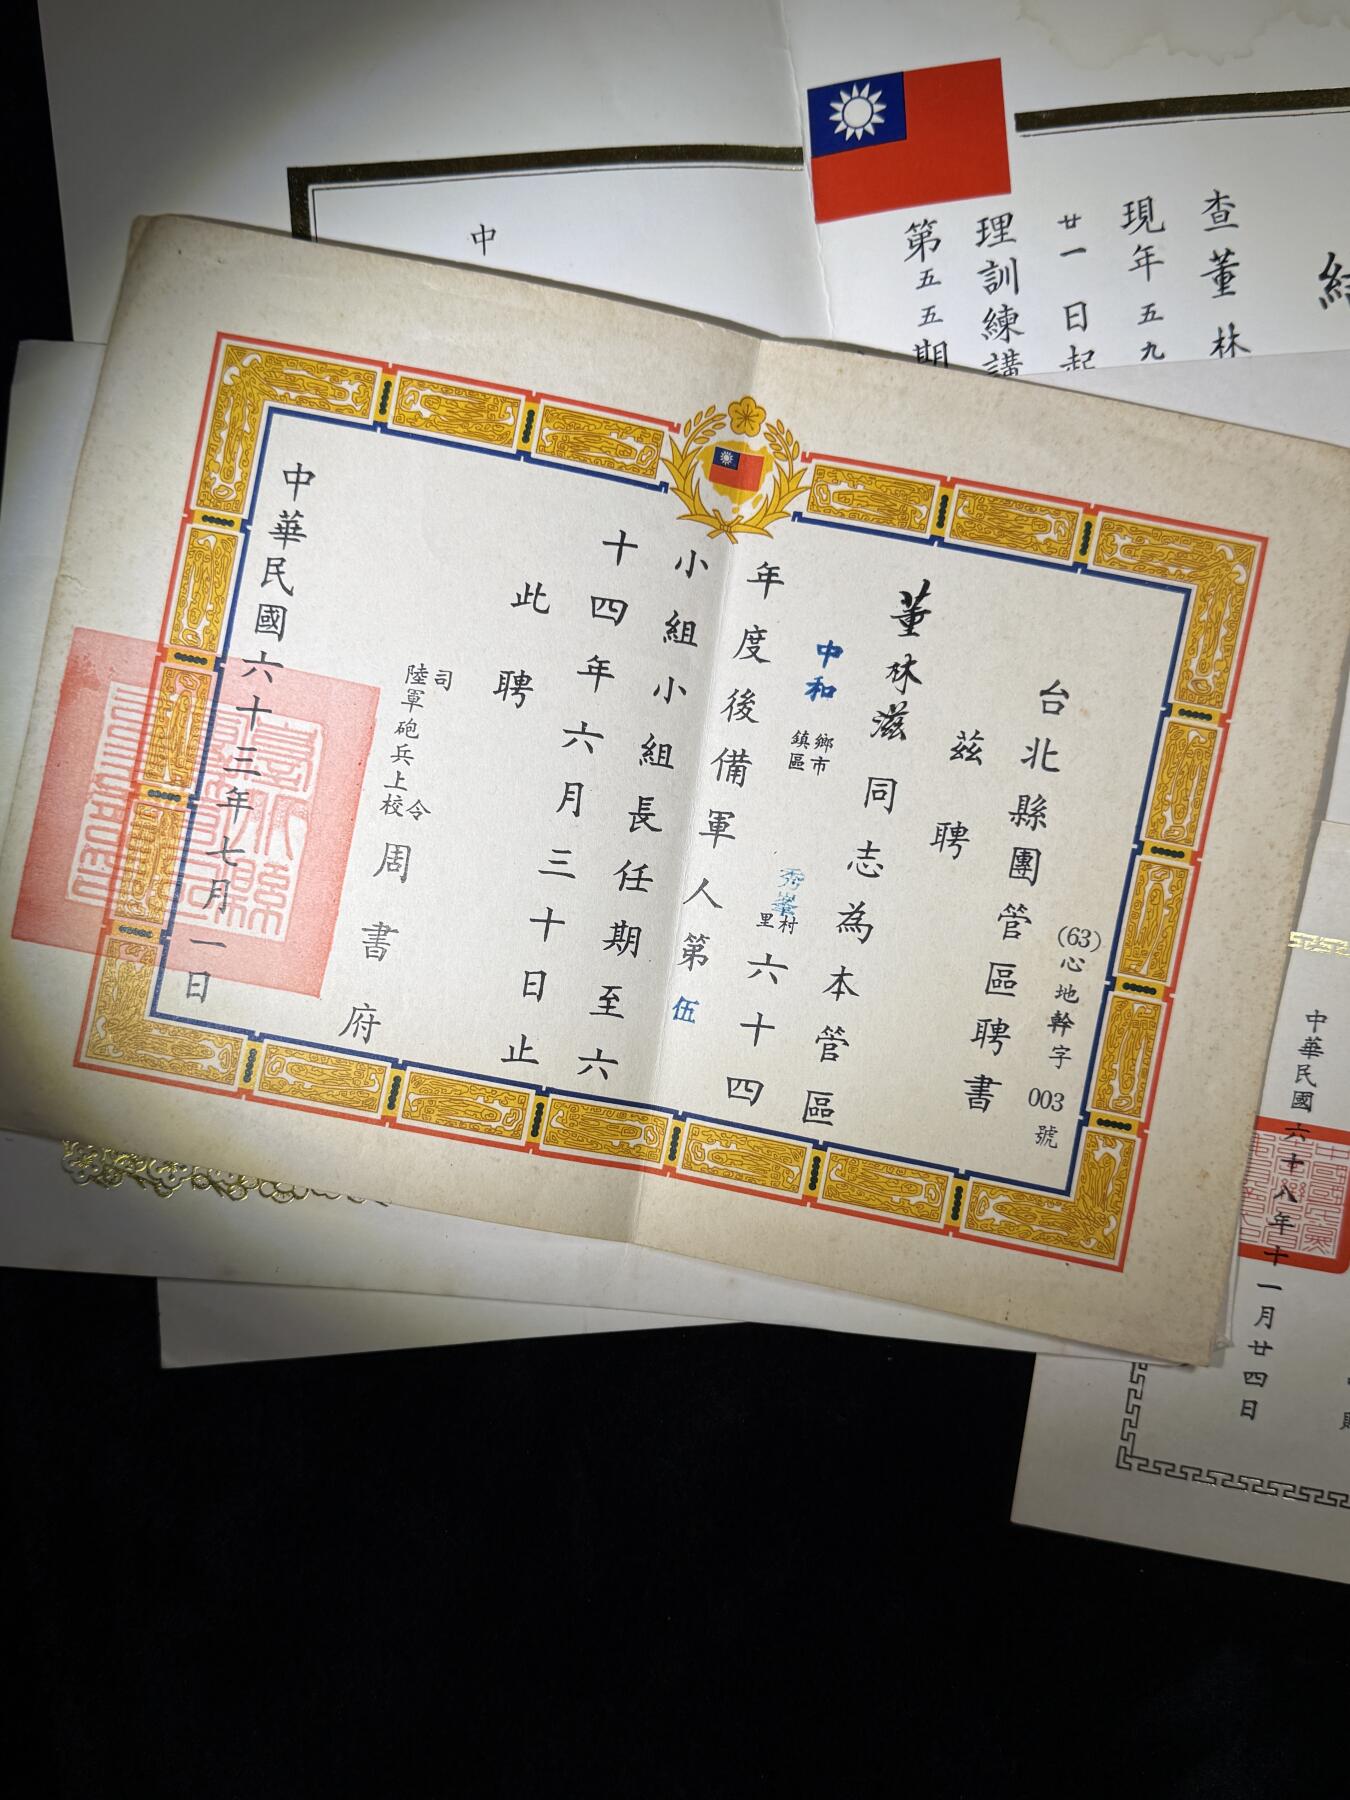 台北縣團管區聘書
(63)心地幹字 003 號
茲聘
董林滋同志為本管區
中和 鄉鎮市區 秀峯 村里 六十四
年度後備軍人第伍
小組小組長任期至六
十四年六月三十日止
此聘
司令
陸軍砲兵上校 周書府
中華民國六十三年七月一日
查董林
現年五九
廿一日起
理訓練講
第五五期
中
中華民國六十八年十一月廿四日